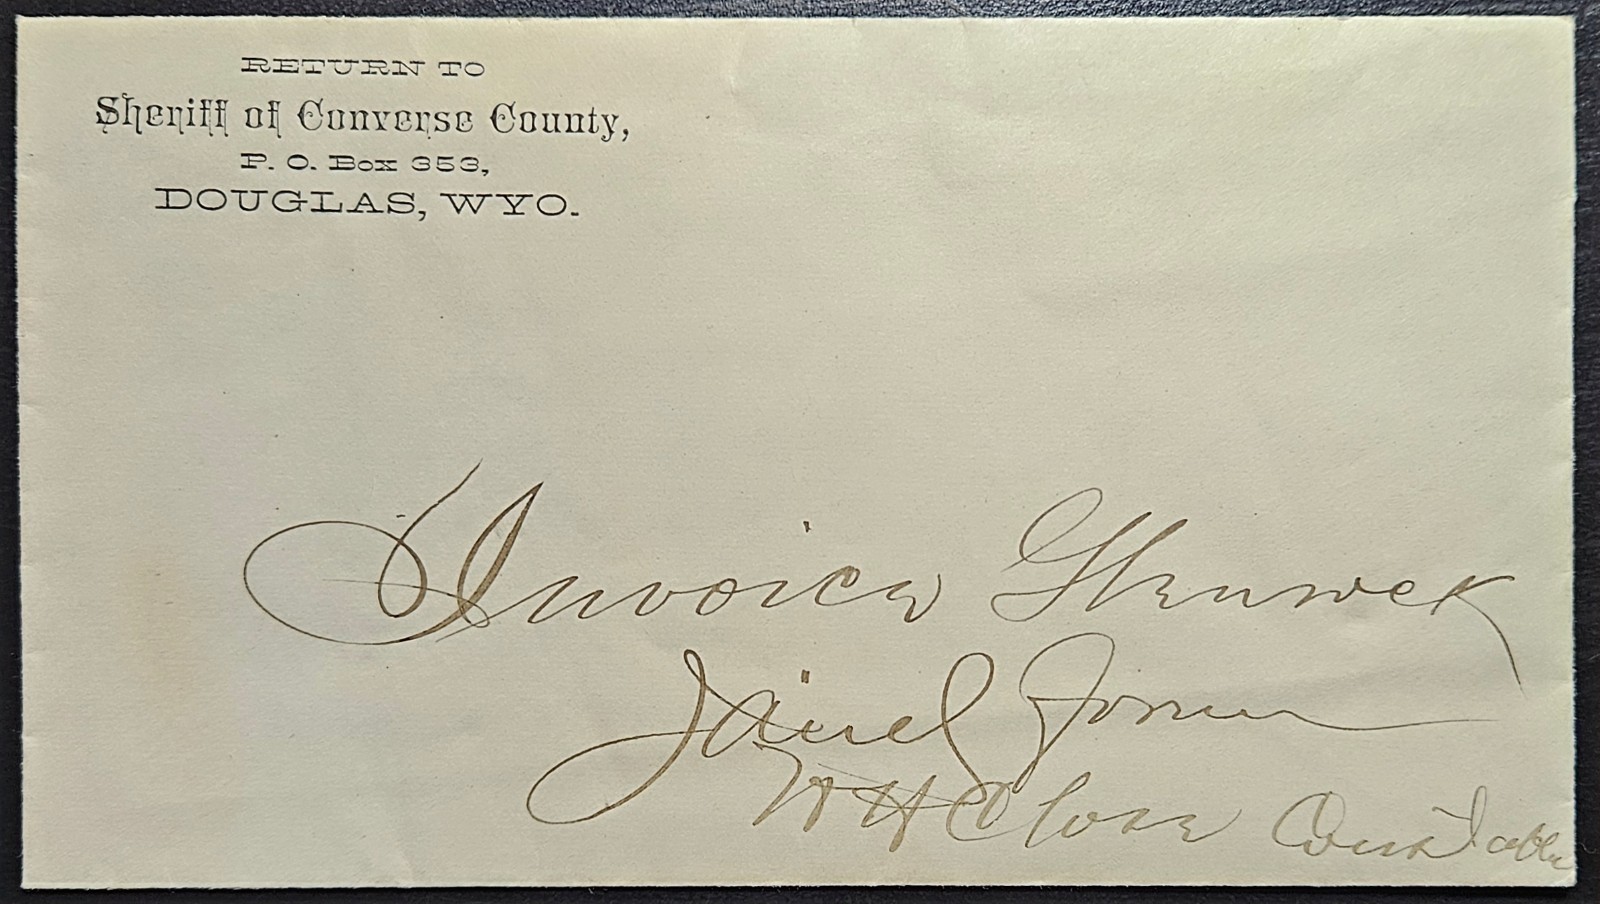 RETURN TO
Sheriff of Converse County,
P. O. Box 353,
DOUGLAS, WYO.
Invoice
W H Close Constable